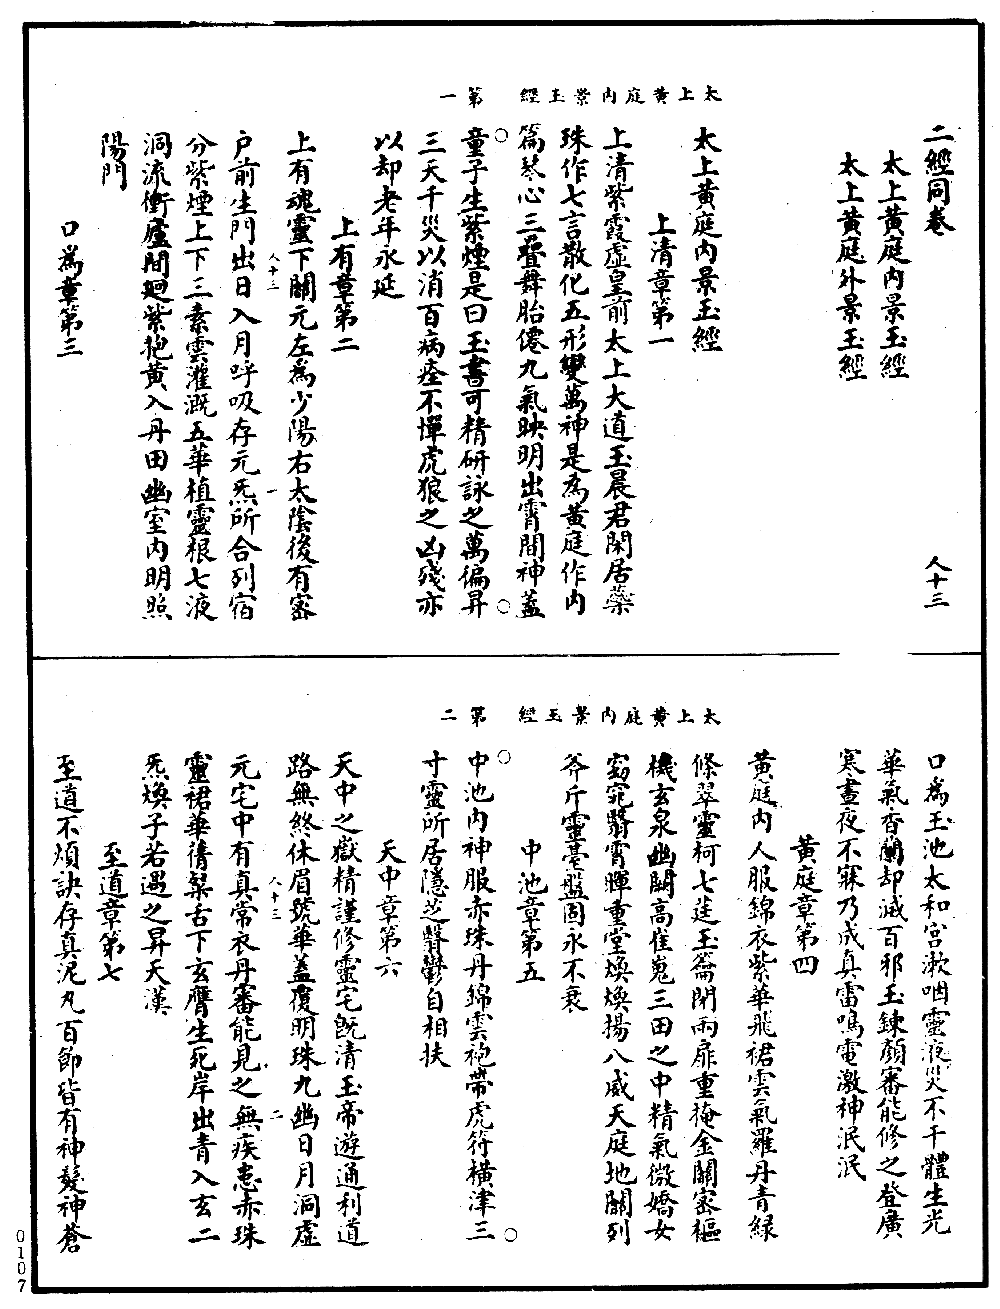 二經同卷
人十三
太上黃庭內景玉經
太上黃庭外景玉經
太上黃庭內景玉經 第一
太上黃庭內景玉經
上清章第一
上清紫霞虛皇前太上大道玉晨君閑居蘂
珠作七言散化五形變萬神是為黃庭作內
篇琴心三疊舞胎僊九氣映明出霄間神蓋
童子生紫煙是曰玉書可精研詠之萬徧昇
三天千災以消百病痊不憚虎狼之凶殘亦
以却老年永延
上有章第二
上有魂靈下關元左為少陽右太陰後有密
人十三 一
户前生門出日入月呼吸存元炁所合列宿
分紫煙上下三素雲灌溉五華植靈根七液
洞流衝廬間廻紫抱黃入丹田幽室內明照
陽門
口為章第三
太上黃庭內景玉經 第二
口為玉池太和宮漱咽靈液災不干體生光
華氣香蘭却滅百邪玉鍊顏審能修之登廣
寒晝夜不寐乃成真雷鳴電激神泯泯
黃庭章第四
黃庭內人服錦衣紫華飛裙雲氣羅丹青緑
條翠靈柯七莛玉籥閉兩扉重掩金關密樞
機玄泉幽關高崔嵬三田之中精氣微嬌女
窈窕翳霄暉重堂煥煥揚八威天庭地關列
斧斤靈臺盤固永不衰
中池章第五
中池內神服赤珠丹錦雲袍帶虎符橫津三
寸靈所居隱芝翳鬱自相扶
天中章第六
天中之嶽精謹修靈宅既清玉帝遊通利道
路無終休眉號華蓋覆明珠九幽日月洞虛
人十三 二
元宅中有真常衣丹審能見之無疾患赤珠
靈裙華蒨粲舌下玄膺生死岸出青入玄二
炁煥子若遇之昇天漢
至道章第七
至道不煩訣存真泥丸百節皆有神髮神蒼
0107